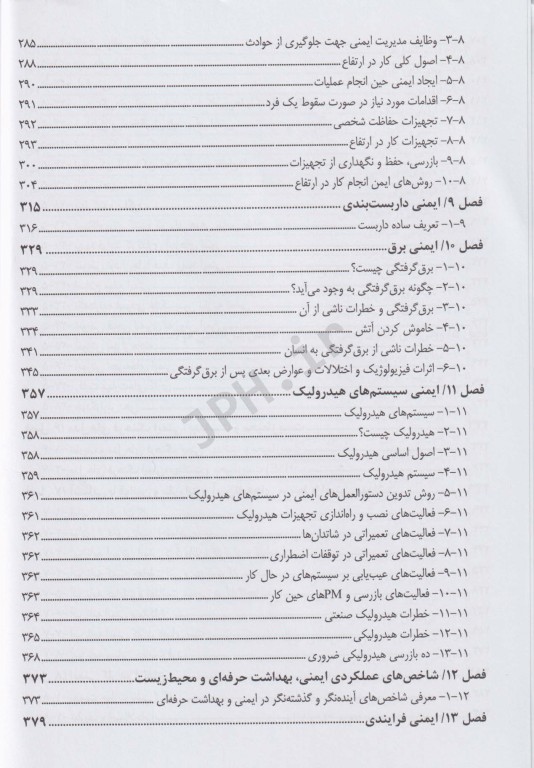 ۳-۸- وظایف مدیریت ایمنی جهت جلوگیری از حوادث ۲۸۵
۴-۸- اصول کلی کار در ارتفاع ۲۸۸
۵-۸- ایجاد ایمنی حین انجام عملیات ۲۹۰
۶-۸- اقدامات مورد نیاز در صورت سقوط یک فرد ۲۹۱
۷-۸- تجهیزات حفاظت شخصی ۲۹۲
۸-۸- تجهیزات کار در ارتفاع ۲۹۳
۹-۸- بازرسی، حفظ و نگهداری از تجهیزات ۳۰۰
۱۰-۸- روش‌های ایمن انجام کار در ارتفاع ۳۰۴
فصل ۹/ ایمنی داربست‌بندی ۳۱۵
۱-۹- تعریف ساده داربست ۳۱۶
فصل ۱۰/ ایمنی برق ۳۲۹
۱-۱۰- برق‌گرفتگی چیست؟ ۳۲۹
۲-۱۰- چگونه برق‌گرفتگی به وجود می‌آید؟ ۳۲۹
۳-۱۰- برق‌گرفتگی و خطرات ناشی از آن ۳۳۳
۴-۱۰- خاموش کردن آتش ۳۳۴
۵-۱۰- خطرات ناشی از برق‌گرفتگی به انسان ۳۴۱
۶-۱۰- اثرات فیزیولوژیک و اختلالات و عوارض بعدی پس از برق‌گرفتگی ۳۴۵
فصل ۱۱/ ایمنی سیستم‌های هیدرولیک ۳۵۷
۱-۱۱- سیستم‌های هیدرولیک ۳۵۷
۲-۱۱- هیدرولیک چیست؟ ۳۵۸
۳-۱۱- اصول اساسی هیدرولیک ۳۵۸
۴-۱۱- سیستم هیدرولیک ۳۵۹
۵-۱۱- روش تدوین دستورالعمل‌های ایمنی در سیستم‌های هیدرولیک ۳۶۱
۶-۱۱- فعالیت‌های نصب و راه‌اندازی تجهیزات هیدرولیک ۳۶۱
۷-۱۱- فعالیت‌های تعمیراتی در شاتدان‌ها ۳۶۲
۸-۱۱- فعالیت‌های تعمیراتی در توقفات اضطراری ۳۶۲
۹-۱۱- فعالیت‌های عیب‌یابی بر سیستم‌های در حال کار ۳۶۳
۱۰-۱۱- فعالیت‌های بازرسی و PMهای حین کار ۳۶۳
۱۱-۱۱- خطرات هیدرولیک صنعتی ۳۶۴
۱۲-۱۱- خطرات هیدرولیکی ۳۶۵
۱۳-۱۱- ده بازرسی هیدرولیکی ضروری ۳۶۸
فصل ۱۲/ شاخص‌های عملکردی ایمنی، بهداشت حرفه‌ای و محیط‌زیست ۳۷۳
۱-۱۲- معرفی شاخص‌های آینده‌نگر و گذشته‌نگر در ایمنی و بهداشت حرفه‌ای ۳۷۳
فصل ۱۳/ ایمنی فرایندی ۳۷۹
JPH.ir